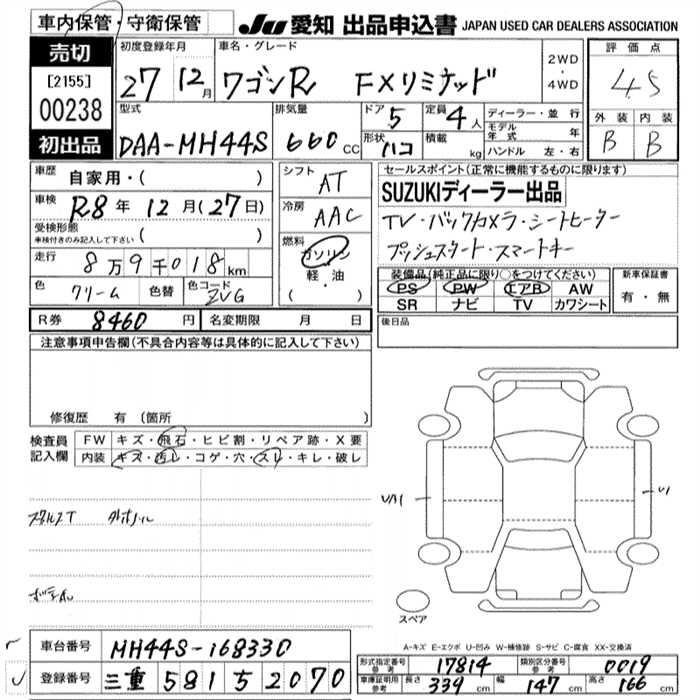 車内保管・守衛保管
JU 愛知 出品申込書 JAPAN USED CAR DEALERS ASSOCIATION
売切
[2155]
00238
初出品
初度登録年月
27 12月
車名・グレード
ワゴンR FXリミテッド
2WD
・
4WD
評価点
4.5
外装 内装
B B
型式
DAA-MH44S
排気量
660cc
ドア 5
形状 ハコ
定員 4人
積載 kg
ディーラー・並行
モデル年式 年
ハンドル 左・右
車歴 自家用・( )
車検 R8年 12月(27日)
受検形態
車検付きのみ記入して下さい ( )
走行 8万9千018km
色 クリーム 色替 色コード ZVG
シフト AT
冷房 AAC
燃料
ガソリン
軽・油
( ・ )
セールスポイント(正常に機能するものに限ります)
SUZUKIディーラー出品
TV・バックカメラ・シートヒーター
プッシュスタート・スマートキー
装備品(純正品に限り○をつけてください)
PS PW エアB AW
SR ナビ TV カワシート
新車保証書
有・無
R券 8460円 名変期限 月 日
後日品
注意事項申告欄(不具合内容等は具体的に記入して下さい)
修復歴 有 (箇所 )
検査員記入欄
FW キズ・飛石・ヒビ割・リペア跡・X要
内装 キズ・汚レ・コゲ・穴・スレ・キレ・破レ
U1
スペア
A-キズ E-エクボ U-凹み W-補修跡 S-サビ C-腐食 XX-交換済
車台番号 MH44S-168330
登録番号 三重 581 5 2070
形式指定番号 参考 17814 類別区分番号 参考 0019
車庫証明用 参考 長さ 339cm 幅 147cm 高さ 166cm